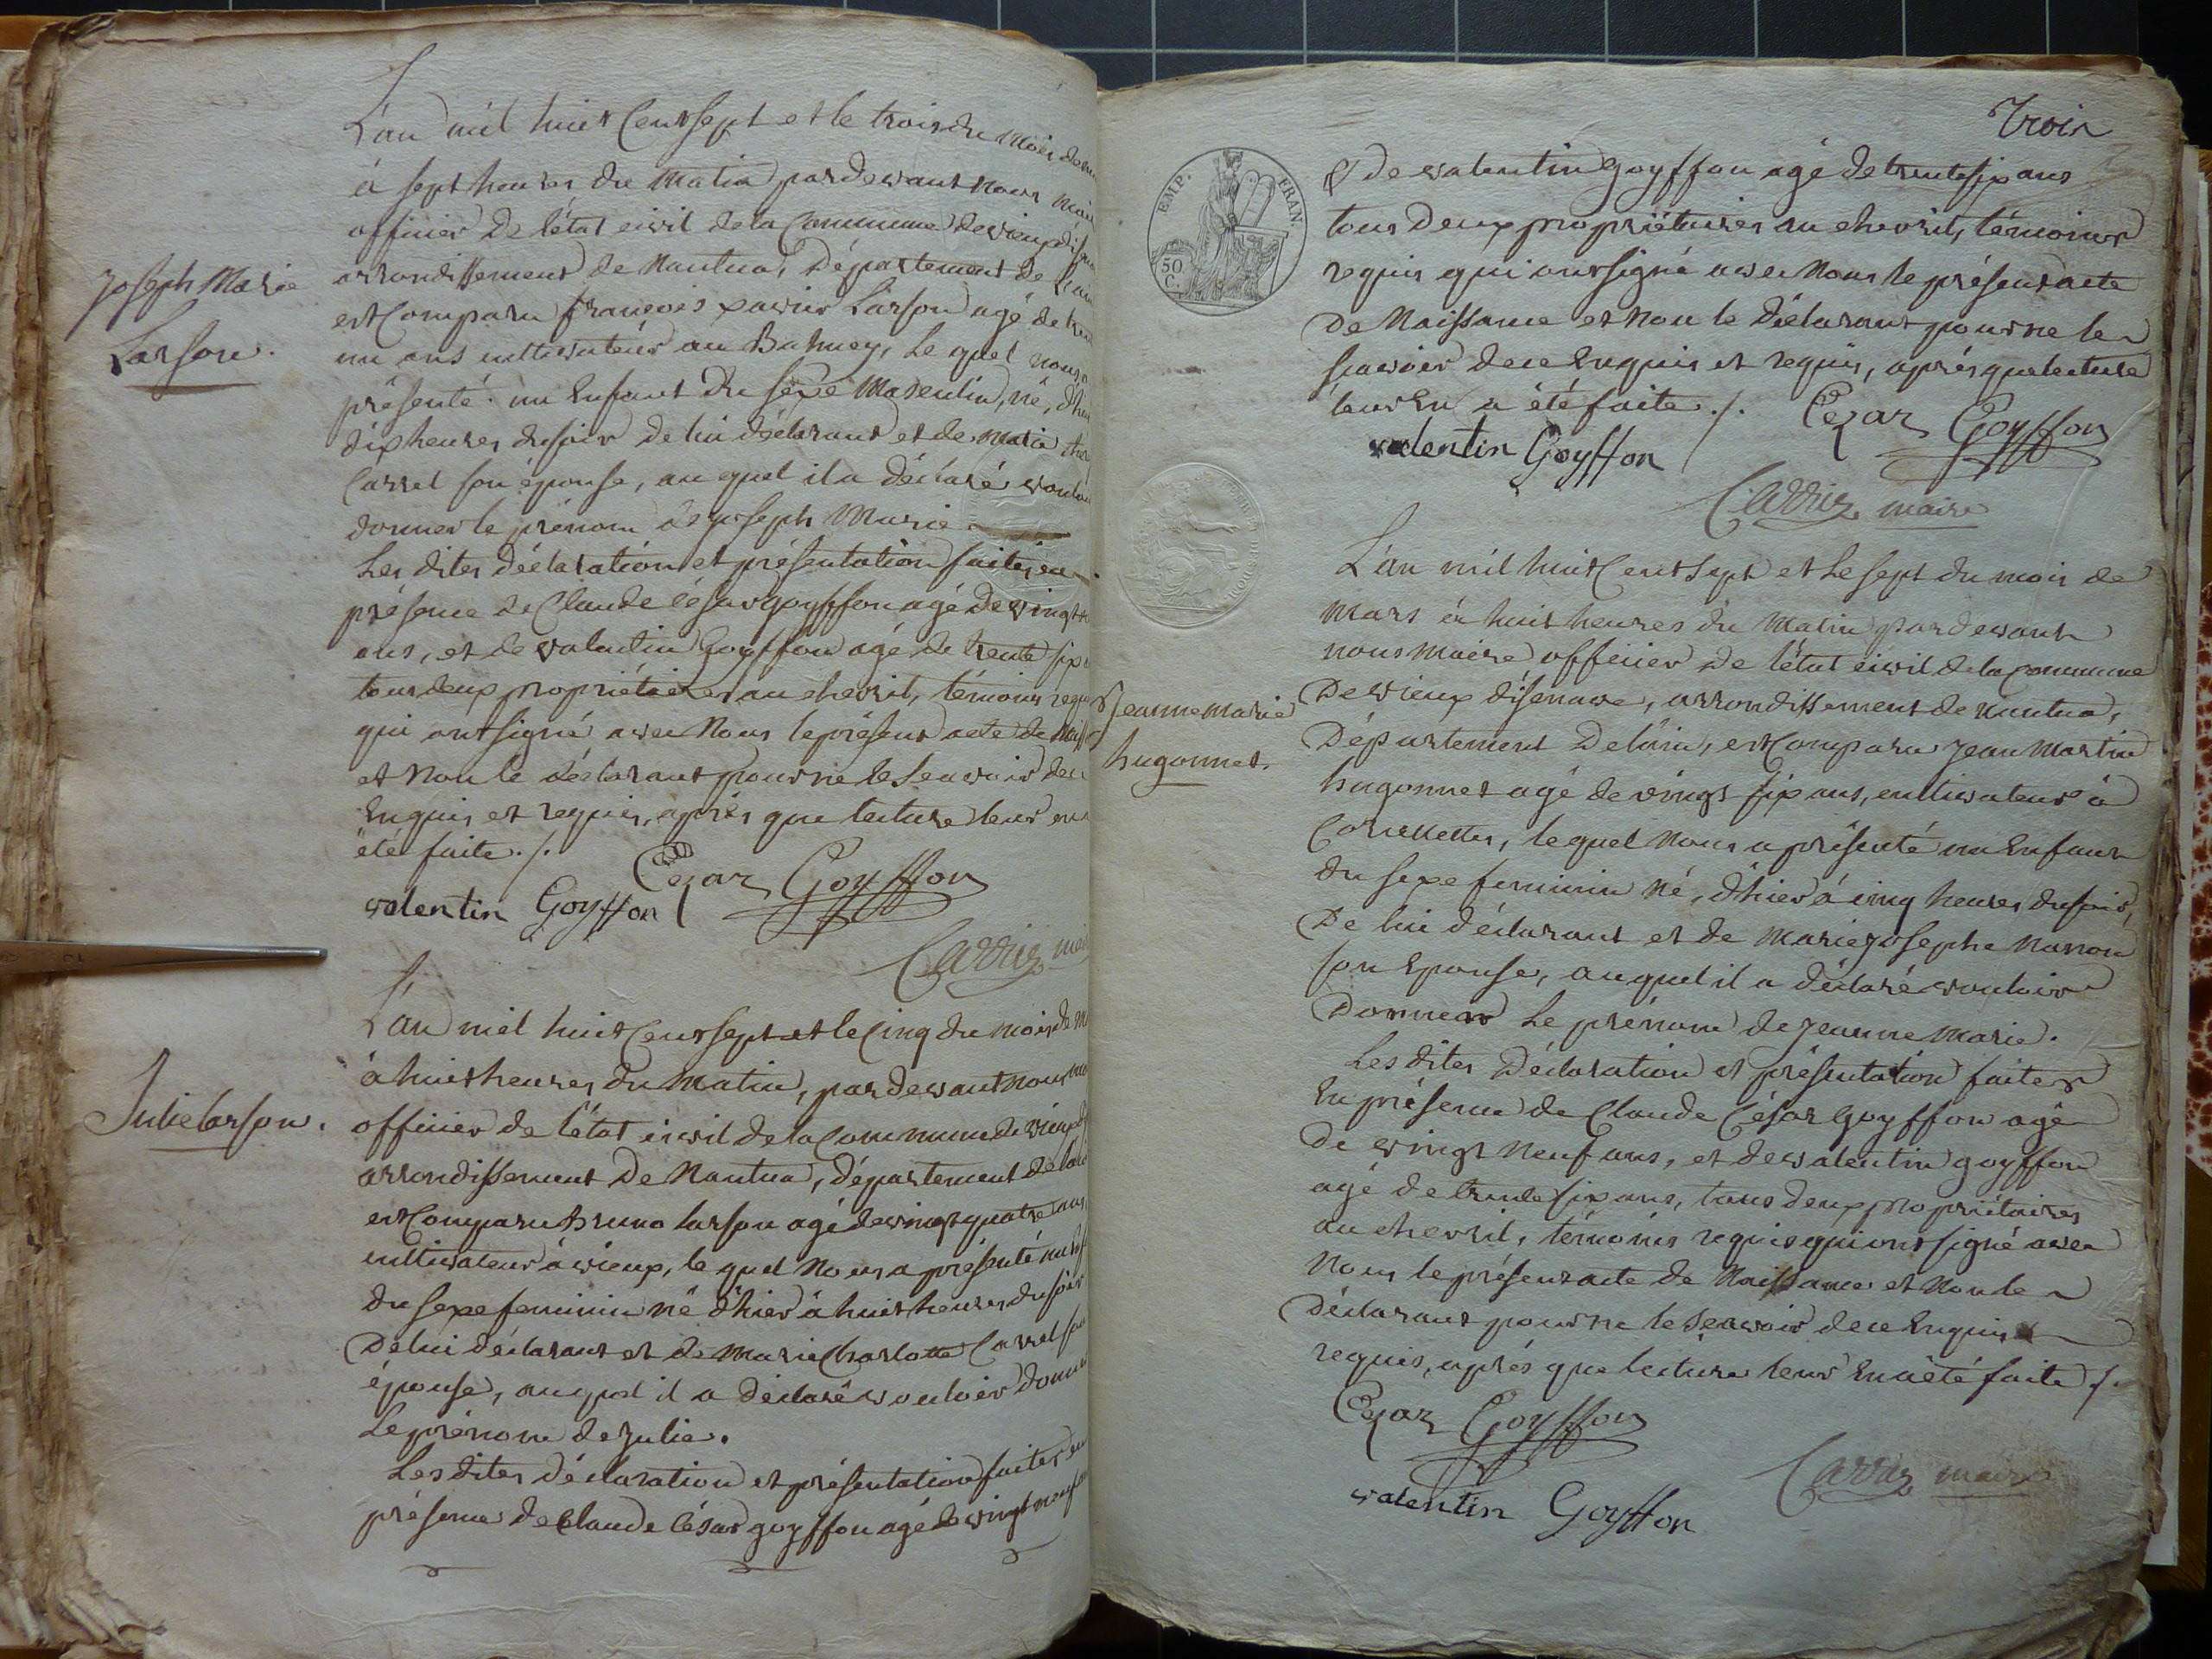 L'an mil huit Cent sept et le trois du mois de
à sept heures du matin pardevant nous mair
officier de l'état civil de la Commune de vieux d'isen
arrondissement de Nantua, Département de l'ain
est Comparu françois xavier Larson agé de tren
un ans cultivateur au Buhuey, le quel nous a
présenté un Enfant du sexe Masculin, né, d'hier
dix heures du soir de lui déclarant et de Maria the
Carrel son épouse, au quel il a déclaré vouloir
donner le prénom de joseph Marie
Les dites déclaration et présentation faites en
présence de Claude césar goyffon agé de vingt
ans, et de valentin goyffon agé de trente six
tous deux propriétaires au chevril, témoins requ
qui ont signé avec Nous le présent acte de naiss
et Non le déclarant pour ne le scavoir de ce
Enquis et requis, après que lecture leur en a
été faite ./.
Cezar Goyffon
valentin Goyffon
Carrier mai
joseph Marie
Larson.
L'an mil huit Cent sept et le Cinq du mois de M
à huit heures du Matin, par devant nous ma
officier de l'état civil de la Commune de vieux d
arrondissement De Nantua, département de l'ain
est Comparu Bruno larson agé de vingt quatre ans
cultivateur à vieux, le quel Nous a présenté un Enf
du sexe feminin né d'hier à huit heures du soir
De lui déclarant et de Marie Charlotte Carrel son
épouse, au quel il a déclaré vouloir donner
Le prénom de julie.
Les dites déclaration et présentation faites en
présence de Claude César goyffon agé de vingt neuf an
Julie larson.
Trois
& De valentin Goyffon agé de trente six ans
tous Deux propriétaires au chevril, témoins
requis qui ont signé avec Nous le présent acte
De Naissance et Non le Déclarant pour ne le
scavoir de ce Enquis et requis, après que lecture
leur En a été faite ./.
Cezar Goyffon
valentin Goyffon
Carrier maire
L'an mil huit Cent Sept et le sept du mois de
Mars à huit heures du Matin par devant
nous maire officier de l'état civil de la Commune
De vieux d'isenave, arrondissement de Nantua,
Département De l'ain, est Comparu Jean Martin
hugonnet agé de vingt six ans, cultivateur à
Corcellettes, lequel Nous a présenté un Enfant
du sexe feminin né, d'hier à cinq heures du soir,
De lui déclarant et de Marie josephe Narron
son Epouse, au quel il a déclaré vouloir
Donner Le prénom de jeanne Marie.
Les dites Déclaration et présentation faites
En présence de Claude César Goyffon agé
De vingt Neuf ans, et de valentin goyffon
agé de trente six ans, tous deux propriétaires
au chevril, témoins requis qui ont signé avec
Nous le présent acte de Naissance et Non le
Déclarant pour ne le Scavoir de ce Enquis et
requis, après que lecture leur En a été faite ./.
Cezar Goyffon
valentin Goyffon
Carrier maire
Jeanne marie
hugonnet.
EMP. FRAN.
50
C.